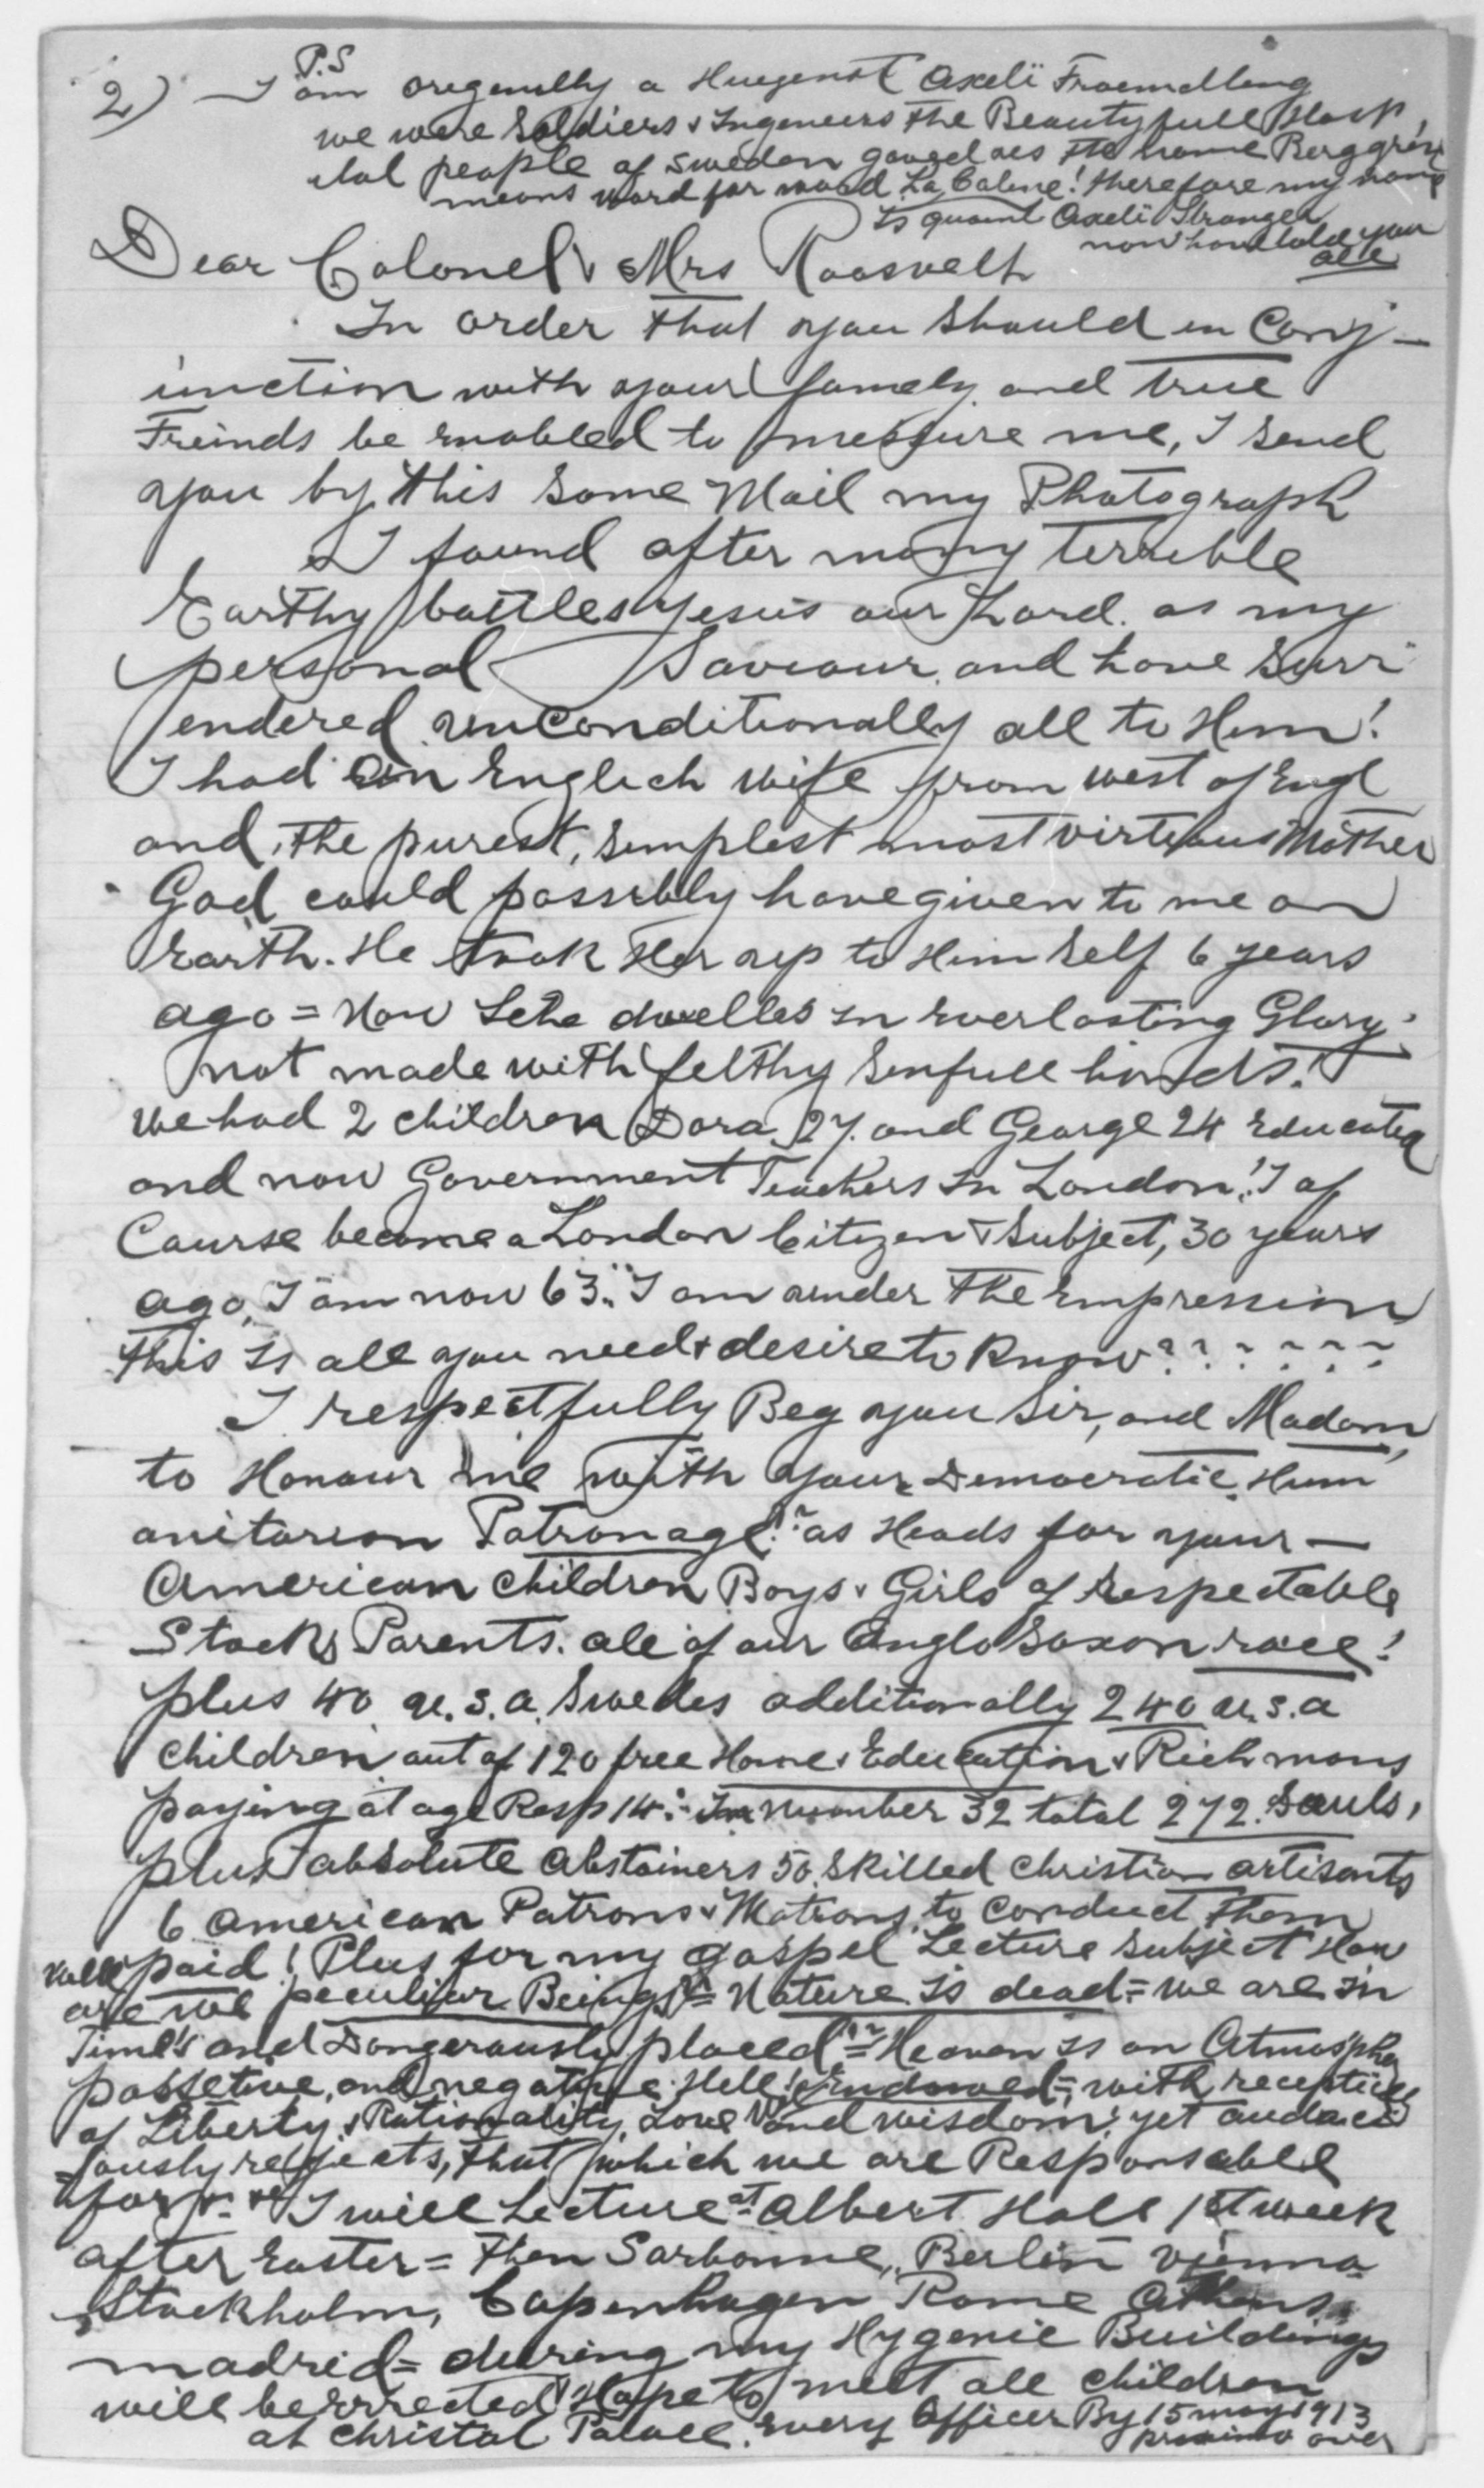 2)
P.S
I am oregenally a Huegenot Axeli Fraemdleng
we were Soldiers & Ingeneers The Beautyfull Hosp
ital people of Sweden gaved us the name Berggren
means word for word La Coline! therefore my name
is quaint Axeli Stranger
now have told you
all
Dear Colonel & Mrs Roosvelt
In order that you should in Conj-
unction with your famely and true
Freinds be enabled to messure me, I send
you by this same Mail my Photograph
I found after many terreble
Earthy battles Jesus our Lord. as my
personal Saviour, and have surr
endered unconditionally all to Him!
I had an Englich wife from west of Engl
and, the purest, semplest most virteous Mother
God could possebly have given to me on
Earth. He took Her up to Him Self 6 years
ago = Now Sche dwelles in everlasting Glory
not made with felthy senfull hands!
We had 2 children Dora 27. and George 24 Educated
and now Government Teachers in London! I of
Course became a London Citizen & Subject, 30 years
ago, I am now 63. I am under the empression
this is all you need & desire to know?
I respectfully Beg you Sir, and Madam,
to Honour me with your Democratic Hum
anitarian Patronage! as Heads for your —
American children Boys & Girls of respectable
Stock Parents. all of our Anglo Saxon race!
plus 40 u.s.a. Swedes additionally 240 u.s.a
children out of 120 free Home & Education & Rich mans
paying at age Resp 14: In number 32 total 272. Souls,
plus absolute Abstainers 50. Skilled Christian artisants
6 American Patrons & Matrons to conduct them
well paid! Plus for my gospel Lecture subject How
are we peculiar Beings = Nature is dead = we are in
Time's and Dangerously placed = Heaven is an Atmosphe
possetive, and negative Hell! Endowed = with recepticles
of Liberty, & Rationality, Love and wisdom; yet audaci
fously rejects, that which we are Responsabel
for. I will Lecture at Albert Hall 1st week
after Easter = Then Sarbonne, Berlin Vienna
Stockholm, Copenhagen Rome Athens
madrid = during my Hygenic Buildings
will be errected! Hope to meet all children
at Christal Palace. every Officer By 15 may 1913
proximo over